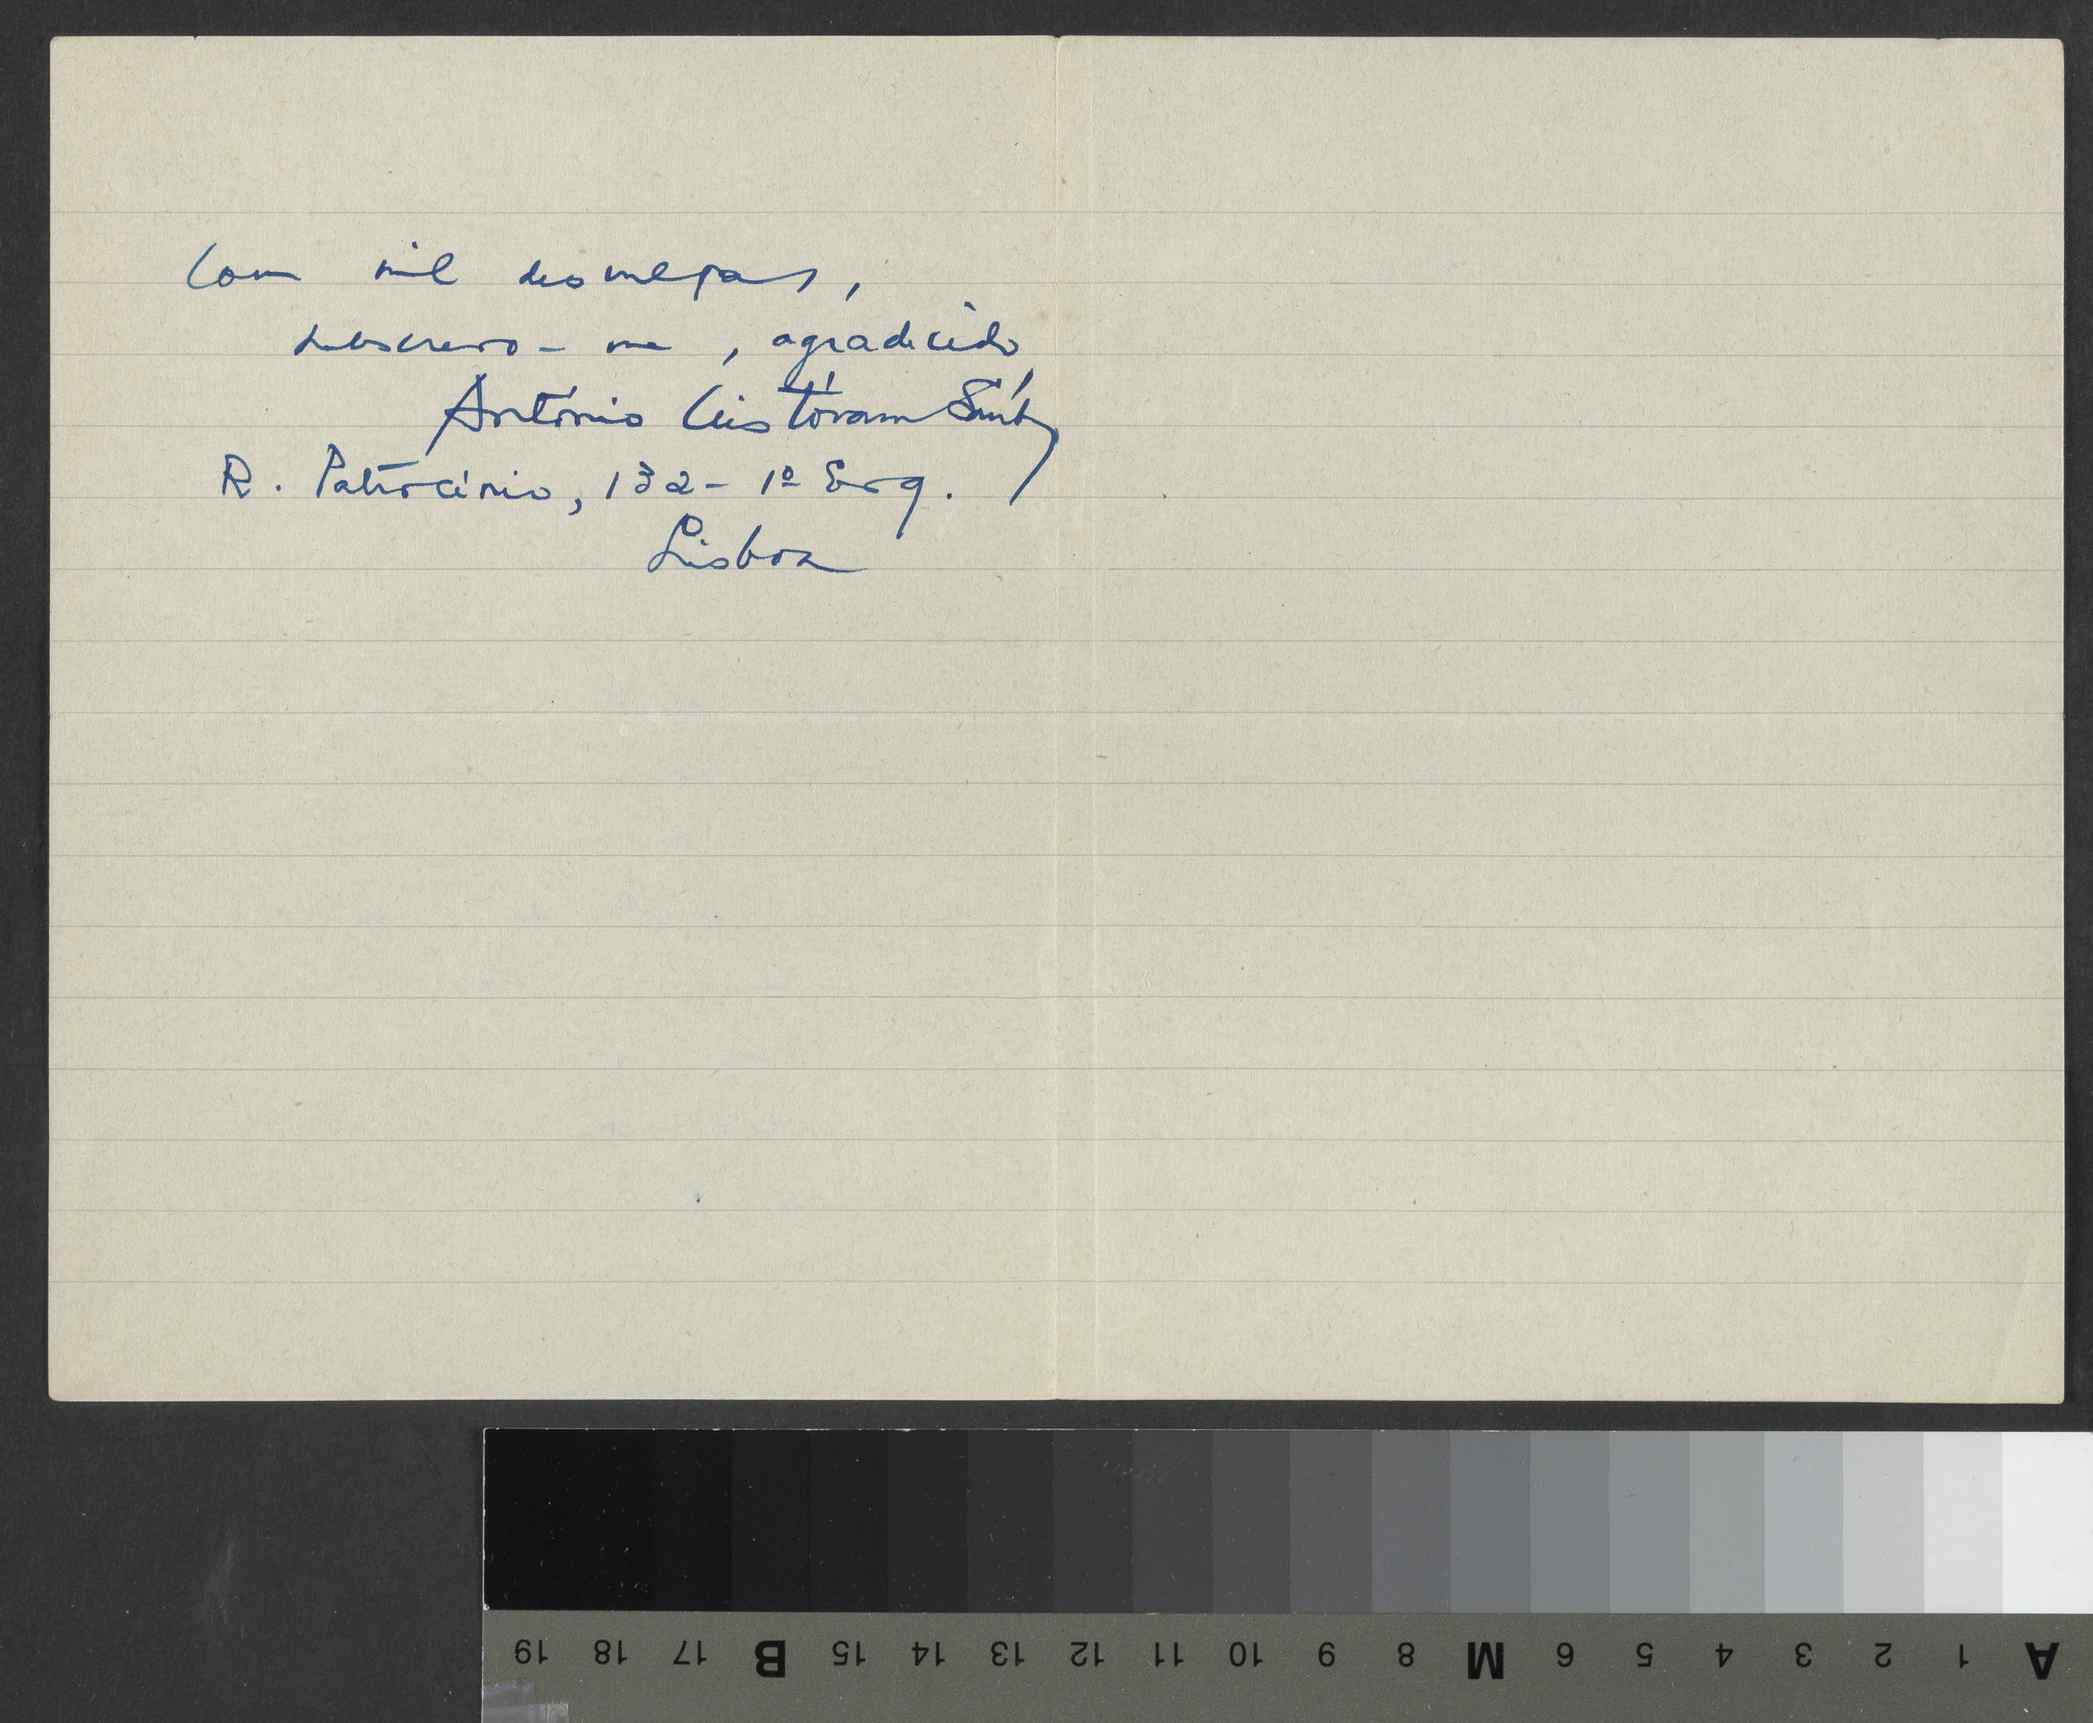 Com mil desculpas,
subscrevo-me, agradecido
António Cristóvam Santos
R. Patrocínio, 132-1º Esq.
Lisboa
19 18 17 B 15 14 13 12 11 10 9 8 M 6 5 4 3 2 1 A